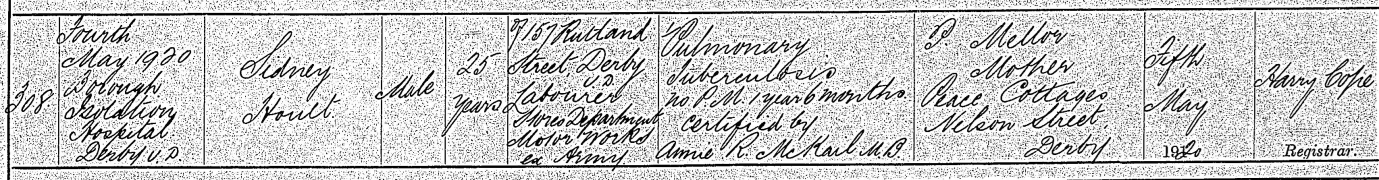 308
Fourth
May 1920
Borough
Isolation
Hospital
Derby U.D.
Sidney
Hoult
Male
25
years
of 157 Rutland
Street, Derby
U.D.
Labourer
Stores Department
Motor Works
ex Army
Pulmonary
Tuberculosis
no P.M. 1 year 6 months
Certified by
Annie R. McKail M.B.
P. Mellor
Mother
Peace Cottages
Nelson Street.
Derby
Fifth
May
1920
Harry Cope
Registrar.